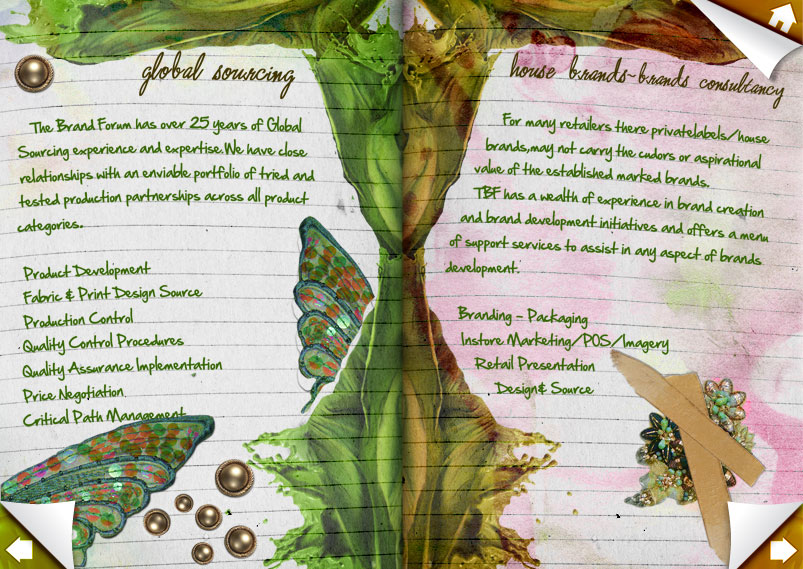 global sourcing
The Brand Forum has over 25 years of Global
Sourcing experience and expertise.We have close
relationships with an enviable portfolio of tried and
tested production partnerships across all product
categories.
Product Development
Fabric & Print Design Source
Production Control
Quality Control Procedures
Quality Assurance Implementation
Price Negotiation
Critical Path Management
house b.rands~b.rands consultancy
For many retailers there privatelabels/house
brands,may not carry the cudors or aspirational
value of the established marked brands.
TBF has a wealth of experience in brand creation
and brand development initiatives and offers a menu
of support services to assist in any aspect of brands
development.
Branding - Packaging
Instore Marketing/POS/Imagery
Retail Presentation
Design& Source